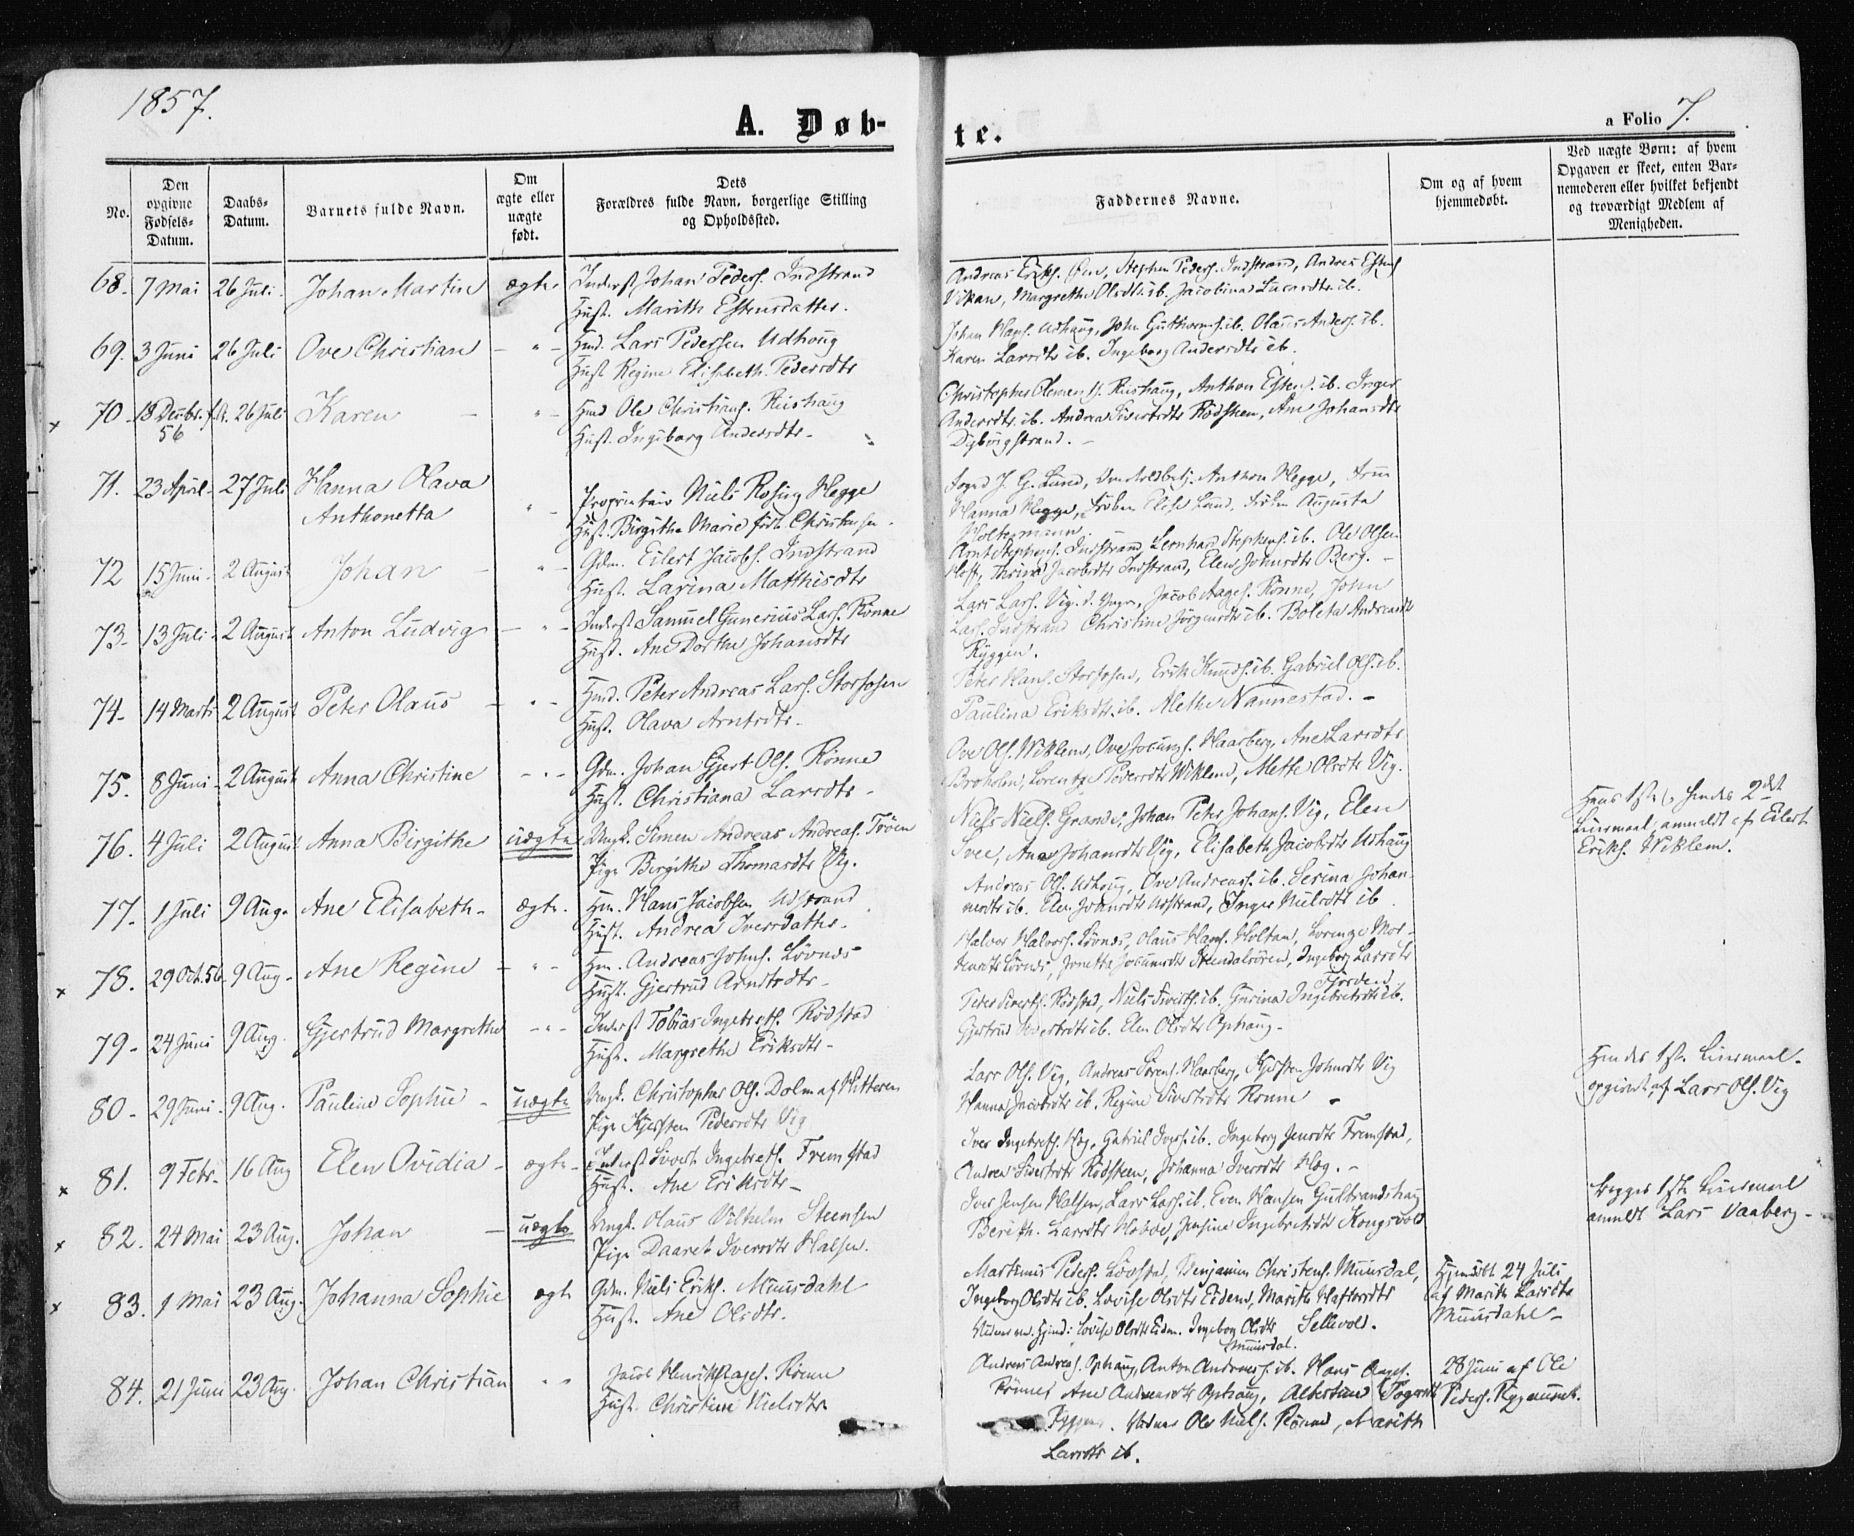 1857.
A. Døb-
te.
a Folio 7.
No.
Den opgivne Fødsels-Datum.
Daabs-Datum.
Barnets fulde Navn.
Om ægte eller uægte født.
Dets Forældres fulde Navn, borgerlige Stilling og Opholdssted.
Faddernes Navne.
Om og af hvem hjemmedøbt.
Ved uægte Børn: af hvem Opgaven er skeet, enten Barnemoderen eller hvilket bekjendt og troværdigt Medlem af Menigheden.
68. 7 Mai 26 Juli. Johan Martin ægte Inderst Johan Peders. Indstrand
Hust. Marith Estensdatter.
Andreas Eriks. Øen, Stephen Peders. Indstrand, Andreas Estens
Vikan, Margrethe Olsdtr ib. Jacobina Lucasdtr ib.
69. 3 Juni 26 Juli Ove Christian - " - Hmd. Lars Pedersen Udhoug
Hust Regine Elisabeth Pedersdtr
Johan Hans. Udhaug, John Guthorms. ib. Olaus Anders. ib.
Karen Larsdtr ib. Ingeborg Andersdtr ib.
x 70. 18 Decbr. f.A. 26 Juli Karen - " - Hmd Ole Christians. Rishaug
56
Hust. Ingeborg Andersdtr.
Christopher Clemens. Rishaug, Anthon Estens. ib. Inger
Andersdtr. ib. Andrea Sivertsdtr Rødsheen, Ane Johansdtr
Dybvigstrand. -
71. 23 April 27 Juli Hanna Olava Anthonetta " - Proprietair Niels Rosing Hegge
Hust. Birgitha Marie født Christensen.
Foged J. G. Lund, Anthon Hegge, Frue
Hanna Hegge, Frøken Elise Lund, Frøken Augusta
Holtermann
72 15 Juni 2 August Johan - " - Gdm. Eilert Jacobs. Indstrand
Hust. Larina Matthisdtr
Arnt Stephens. Indstrand, Lernhard Stephens. ib. Ole Olsen
Hoff, Thrine Jacobsdtr Indstrand, Elen Johnsdtr Berg. -
73. 13 Juli 2 August Anton Ludvig - " - Inderst Samuel Gunerius Lars. Rønne
Hust. Ane Dorthe Johansdtr
Lars Lars. Vig d. Yngr, Jacob Aages. Rønne, John
Lars. Indstrand Christine Jørgensdtr ib. Boleta Andreasdtr
Ryggen.
74. 14 Marts 2 August Peter Olaus - " - Hmd. Peter Andreas Lars. Storfosen
Hust. Olava Arntsdtr.
Peter Hans. Storfosen, Erik Knuds. ib. Gabriel Ols. ib.
Paulina Eriksdtr. ib. Alethe Nannestad. -
75. 8 Juni 2 August Anna Christine - " - Gdm. Johan Gjert Ols. Rønne
Hust. Christiana Larsdtr -
Ove Ols. Wiklem, Ove Jocums. Haarberg, Ane Larsdtr
Broholm, Lorentze Pedersdtr Wiklem, Mette Olsdtr Vig.
76. 4 Juli 2 August Anna Birgithe uægte Ungk. Simen Andreas Andreas. Trøen
Pige Birgithe Thomasdtr Vig.
Niels Niels. Grande, Johan Peter Johans. Vig, Elen
Svee, Ane Johansdtr Vig, Elisabeth Jacobsdtr Udhaug
Hans 1ste, hendes 2det
Leiermaal, anmeldt af Eilert
Eriks. Wiklem.
77. 1 Juli 9 Aug. Ane Elisabeth. ægte. Hm. Hans Jacobsen Udstrand
Hust. Andrea Iversdatter.
Andreas Ols. Udhoug, Ove Andreas. ib. Serina Johan-
nesdtr ib. Elen Johnsdtr Udstrand, Inger Nielsdtr ib
x 78. 29 Oct. 56 9 Aug. Ane Regine - " - Hm. Andreas Johns. Løvnes
Hust. Gjertrud Arndtsdtr.
Halvor Halvors. Løvnes, Olaus Hans. Holtan, Lorenze Mor-
tensdtr Løvnes, Jonetta Jocumsdtr Stendalsøren, Ingeborg Larsdtr
Fjorden
79. 24 Juni 9 Aug. Gjertrud Margrethe - " - Inderst Tobias Ingebrets. Rødstad
Hust. Margrethe Eriksdtr.
Peter Siverts. Rødstad, Niels Siverts. ib. Gurina Ingebretsdtr ib.
Gjertrud Sivertsdtr ib. Elen Olsdtr Ophaug.
80. 29 Juni 9 Aug. Pauline Sophie - uægte Ungk. Christopher Ols. Dolm af Hitteren
Pige Kjersten Pedersdtr Vig
Lars Ols. Vig, Andreas Sørens. Haarberg, Kjersten Johnsdtr Vig
Hanna Jacobsdtr ib. Regine Sivertsdtr Rønne
Hendes 1ste Leiermaal.
opgivet af Lars Ols. Vig
x 81. 9 Febr. 16 Aug Elen Ovidia - ægte Inderst Sivert Ingebrets. Fremstad
Hust. Ane Eriksdtr -
Iver Ingebrets. Hog, Gabriel Ivers. ib. Ingeborg Jensdtr Fremstad,
Andrea Sivertsdtr Rødsteen, Johanna Iversdtr Hog. -
x 82. 24 Mai 23 Aug. Johan - uægte Ungk. Olaus Vilhelm Steensen
Pige Daaret Iversdtr Halsen.
Iver Jensen Halsen, Lars Lars. ib. Even Hansen Guldbrandshaug
Berith Larsdtr Hovde, Jensine Ingebretsdtr Kongsvold
begges 1ste Leiermaal
anmeldt Lars Vaaberg -
x 83. 1 Mai 23 Aug. Johanna Sophie ægte Gdm. Niels Eriks. Muusdahl
Hust. Ane Olsdtr.
Martinus Peders. Løvstad, Benjamin Christens. Muusdal,
Ingeborg Olsdtr ib. Lovise Olsdtr Eiden, Marith Haftorsdtr
Sellevold.
Lovise Olsdtr Eiden. Ingebor Olsdtr
Muusdal.
Hjemdøbt 24 Juli
af Marith Larsdtr
Muusdahl -
84. 21 Juni 23 Aug. Johan Christian " " Jacob Henrik Aages. Rønne
Hust. Christine Nielsdtr
Andreas Andreas. Ophaug, Anton Andreas. ib. Hans Aages.
Rønne, Ane Andreasdtr Ophaug, Albertine
Ole Niels. Rønne, Marith
Larsdtr ib.
28 Juni af Ole
Peders.